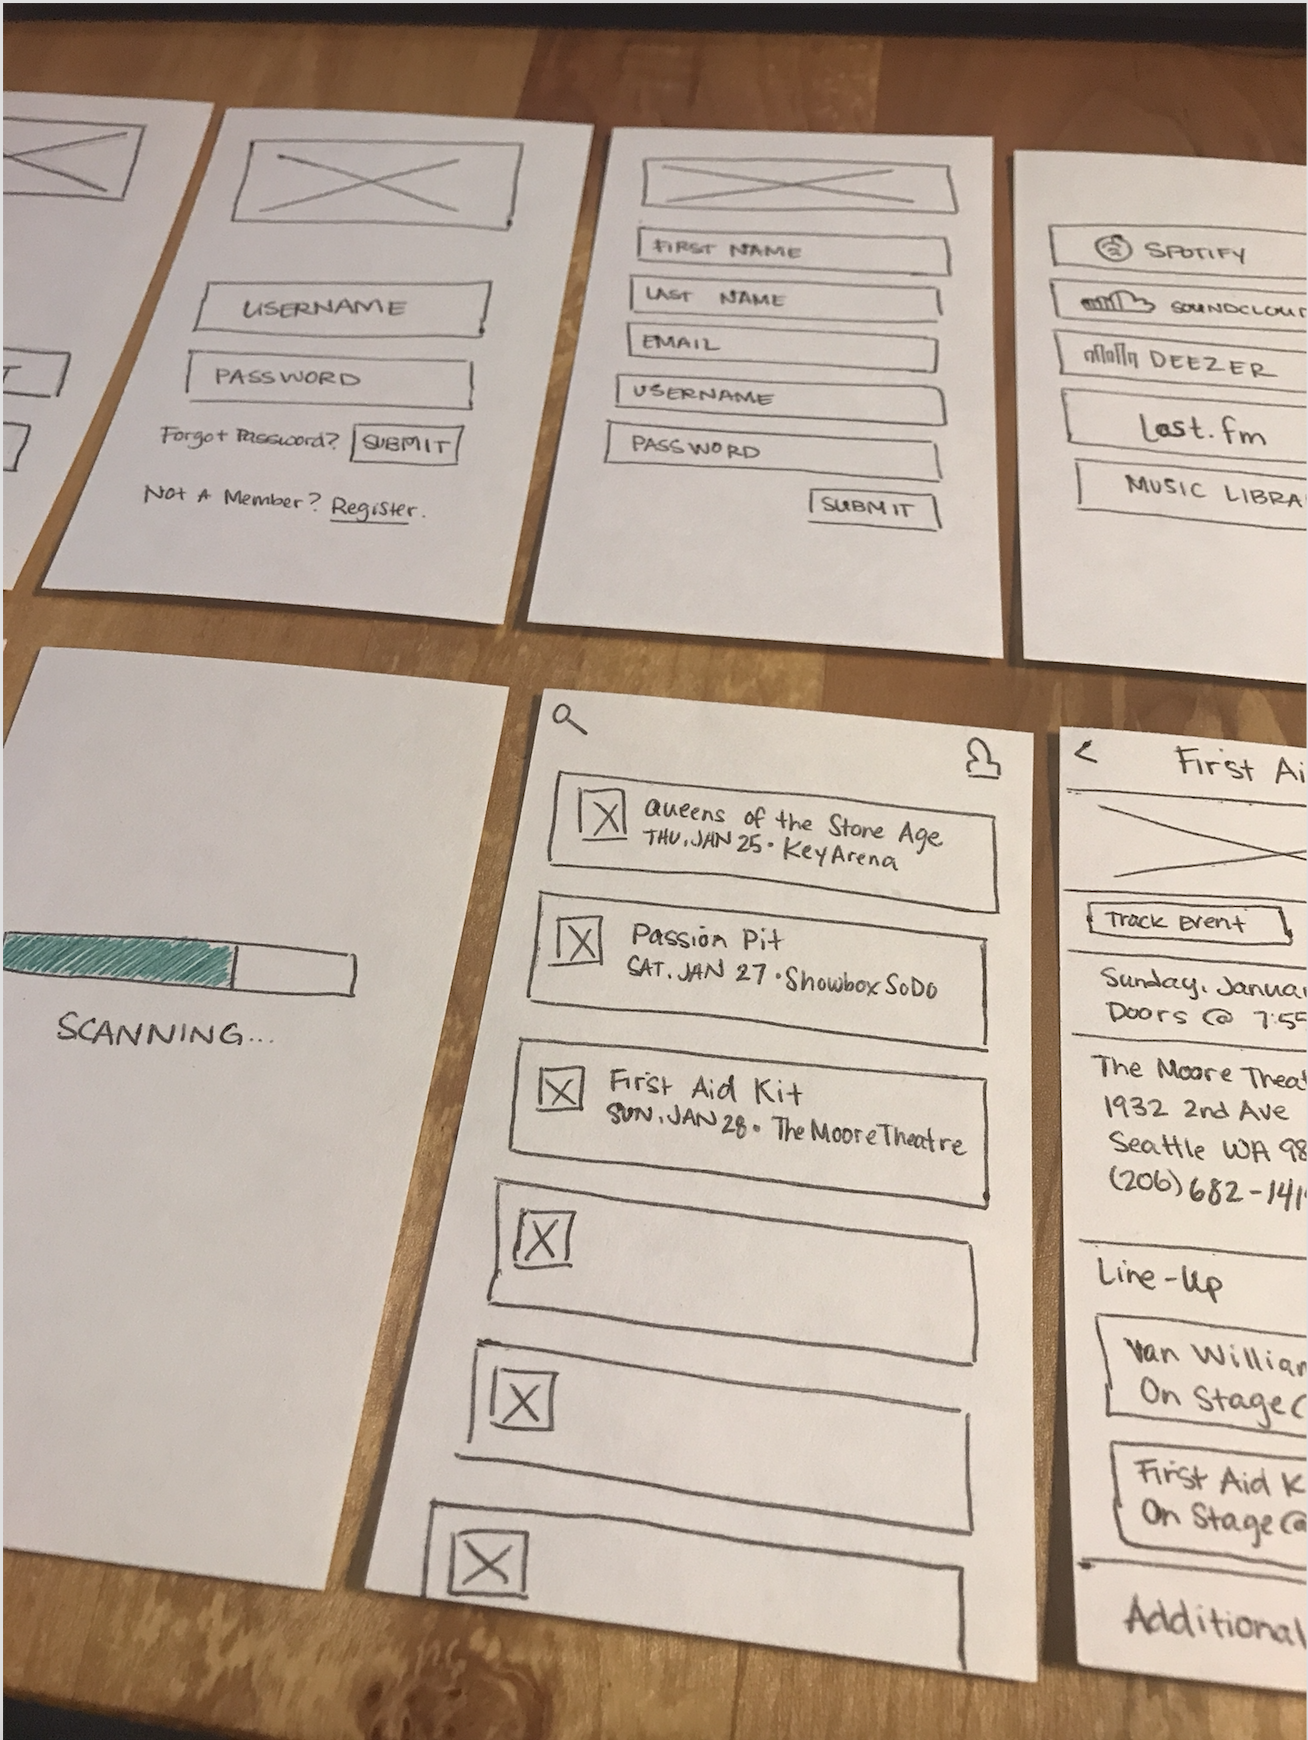 USERNAME
PASSWORD
Forgot Password? SUBMIT
Not A Member? Register.
FIRST NAME
LAST NAME
EMAIL
USERNAME
PASSWORD
SUBMIT
SPOTIFY
SOUNDCLOU
DEEZER
Last.fm
MUSIC LIBRA
SCANNING...
Queens of the Stone Age
THU, JAN 25 • KeyArena
Passion Pit
SAT, JAN 27 • Showbox SoDo
First Aid Kit
SUN, JAN 28 • The Moore Theatre
< First Ai
Track Event
Sunday, Januar
Doors @ 7:55
The Moore Theat
1932 2nd Ave
Seattle WA 98
(206) 682-141
Line-Up
Van William
On Stage
First Aid K
On Stage @
Additional